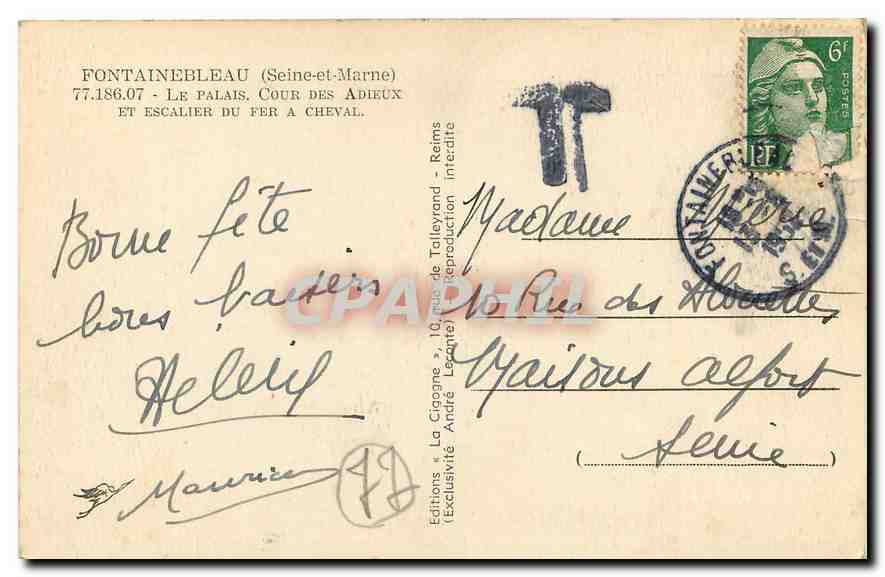 FONTAINEBLEAU (Seine-et-Marne)
77.186.07 - LE PALAIS. COUR DES ADIEUX
ET ESCALIER DU FER A CHEVAL.
Bonne fête
bons baisers
Maurice
77
Editions « La Cigogne », 10, rue de Talleyrand - Reims
(Exclusivité André Leconte) - Reproduction interdite
T
6F
POSTES
RF
FONTAINEBLEAU
S. ET M.
Madame
10 Rue des Alouettes
Maisons Alfort
(Seine)
CPAPHIL